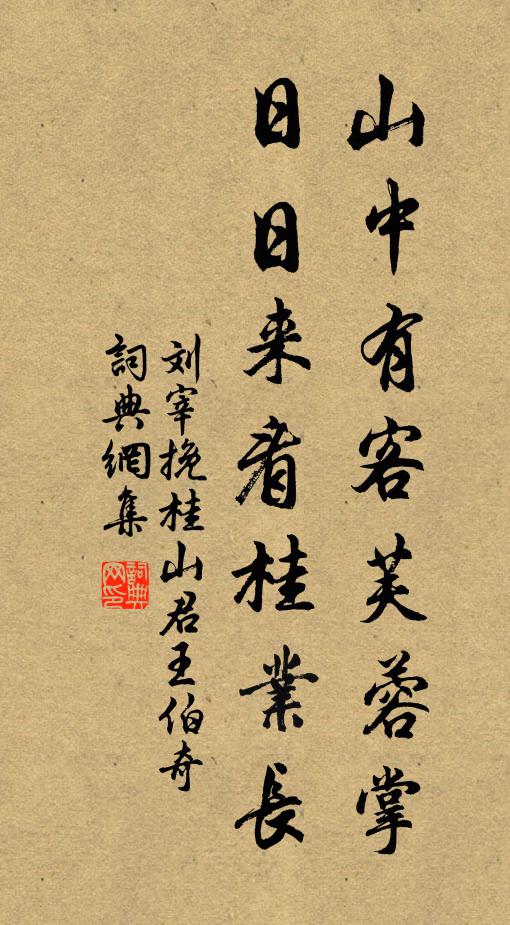 山中有客芙蓉掌
日日来看桂業長
刘宰挽桂山君王伯奇
詞典網集
詞典網印